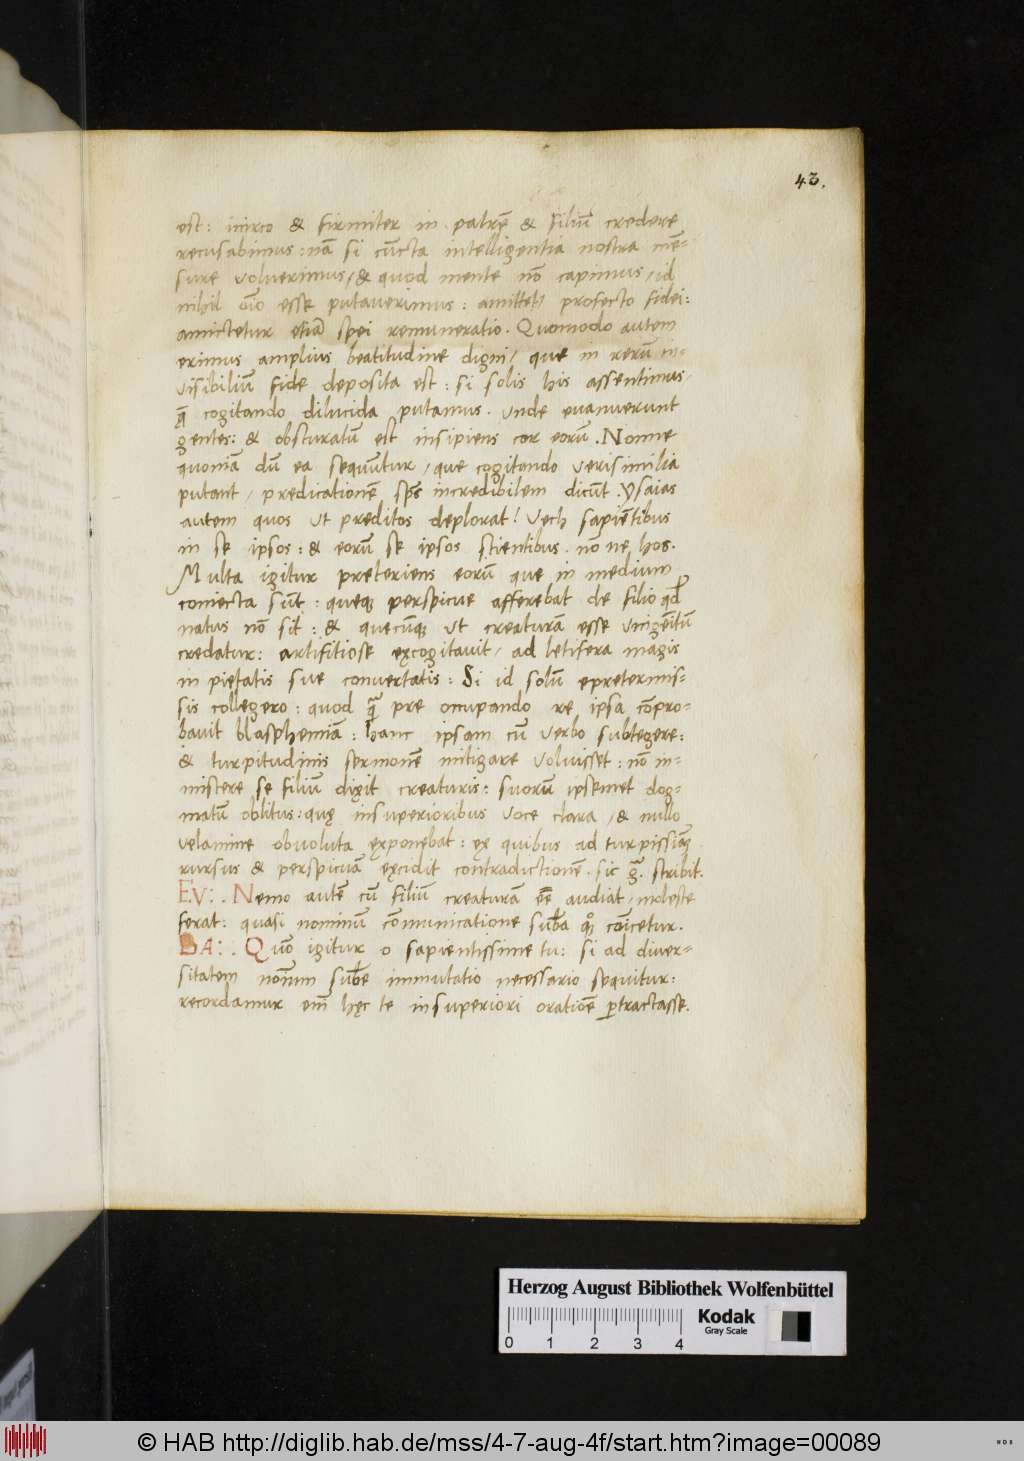 43.
est: iuirco & firmiter in patrē & filiū credere
recusabimus: nā si cūcta intelligentia nostra mē-
sure voluerimus, & quod mente nō capimus, id
nihil oīo esse putaverimus: amittet profecto fidei:
amictetur etiā spei remuneratio. Quomodo autem
erimus amplius beatitudine digni, que in rerū in-
visibiliū fide deposita est: si solis his assentimus,
q̄ cogitando dilucida putamus. Unde evanuerunt
gentes: & obscuratū est insipiens cor eorū. Nonne
quoniā dū ea sequūtur, que cogitando verisimilia
putant, predicationē sp̄s incredibilem dicūt. Ysaias
autem quos ut preditos deplorat! Veh sapiētibus
in se ipsos: & eorū se ipsos scientibus. nō ne hos.
Multa igitur preteriens eorū que in medium
coniecta sūt: queq perspicue afferebat de filio qd
natus nō sit: & quecūq ut creaturā esse unigēitū
credatur: artifitiose excogitavit, ad letifera magis
inpietatis sue convertatis: Si id solū epretermis-
sis collegero: quod q̄ pre occupando re ipsa cōpro-
bavit blasphemiā: hanc ipsam cū verbo subtegere:
& turpitudinis sermonē mitigare voluisset: nō in-
mistere se filiū dixit creaturis: suorū ipsemet dog-
matū oblitus: quę insuperioribus voce clara, & nullo
velamine obvoluta exponebat: ex quibus ad turpissiā
rursus & perspicuā excidit contradictionē. sic g̃. scribit.
EV:. Nemo autē cū filiū creaturā eē audiat, moleste
ferat: quasi nominū cōmunicatione subā q° coīcetur.
BA:. Quō igitur o sapientissime tu: si ad diver-
sitatem noīnum subē immutatio necessario sequitur:
recordamur em̄ hęc te insuperiori oratiōe ptractasse.
Herzog August Bibliothek Wolfenbüttel
0 1 2 3 4
Kodak
Gray Scale
© HAB http://diglib.hab.de/mss/4-7-aug-4f/start.htm?image=00089